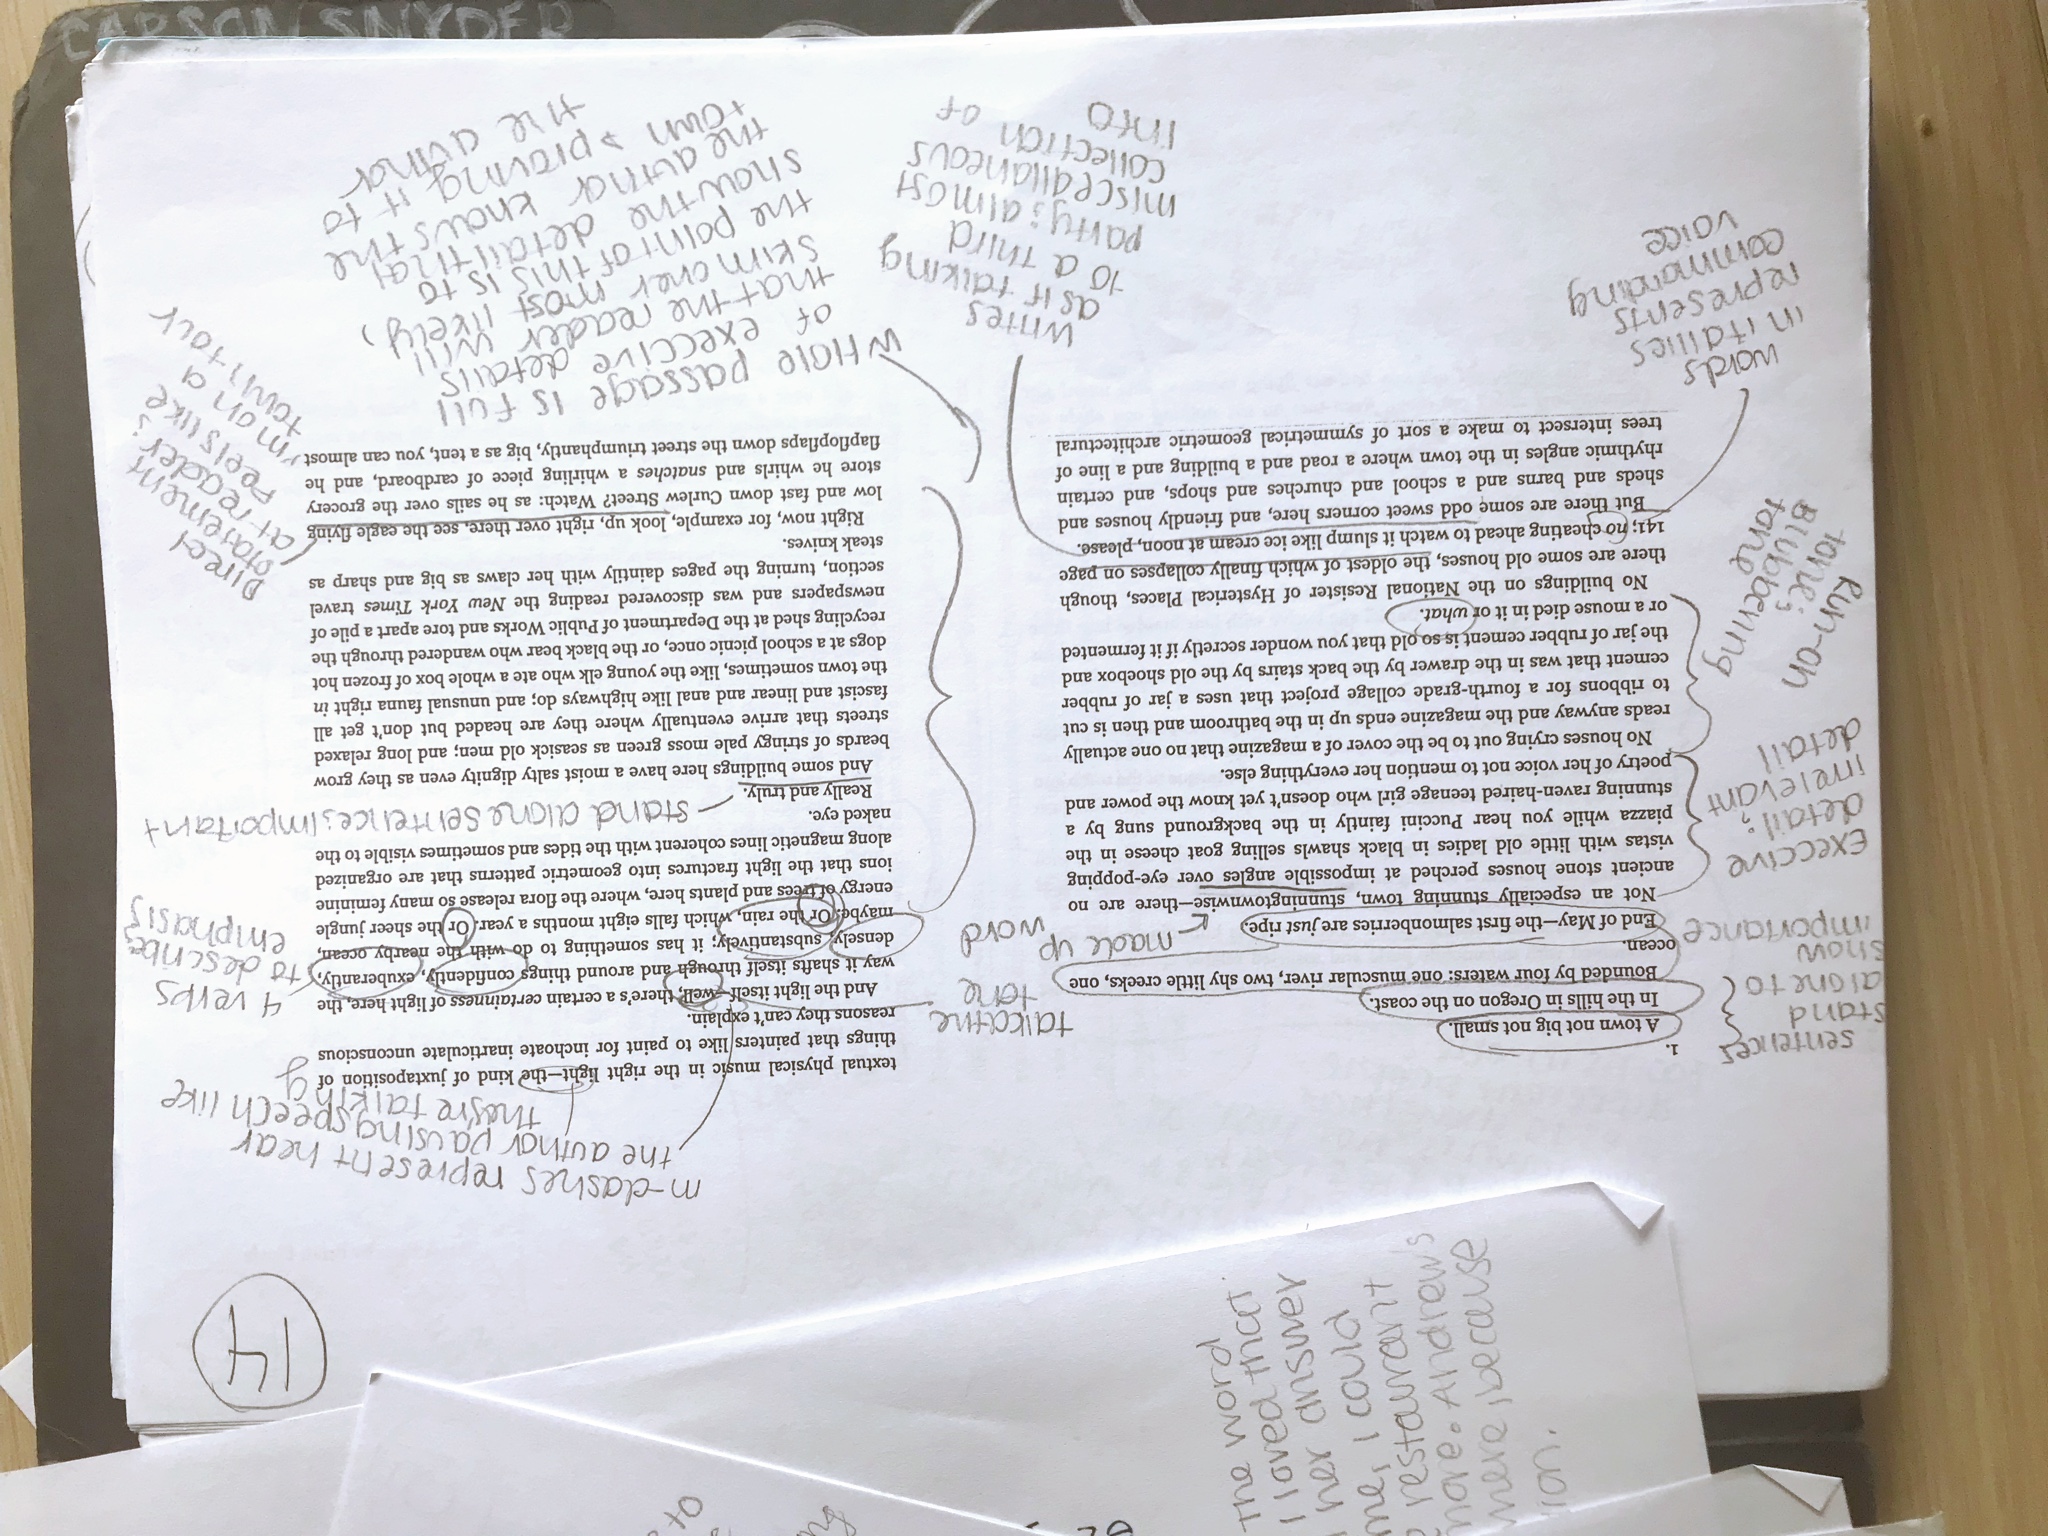 1.
A town not big not small.
In the hills in Oregon on the coast.
Bounded by four waters: one muscular river, two shy little creeks, one
ocean.
End of May—the first salmonberries are just ripe.
Not an especially stunning town, stunningtownwise—there are no
ancient stone houses perched at impossible angles over eye-popping
vistas with little old ladies in black shawls selling goat cheese in the
piazza while you hear Puccini faintly in the background sung by a
stunning raven-haired teenage girl who doesn't yet know the power and
poetry of her voice not to mention her everything else.
No houses crying out to be the cover of a magazine that no one actually
reads anyway and the magazine ends up in the bathroom and then is cut
to ribbons for a fourth-grade collage project that uses a jar of rubber
cement that was in the drawer by the back stairs by the old shoebox and
the jar of rubber cement is so old that you wonder secretly if it fermented
or a mouse died in it or what.
No buildings on the National Resister of Hysterical Places, though
there are some old houses, the oldest of which finally collapses on page
141; no cheating ahead to watch it slump like ice cream at noon, please.
But there are some odd sweet corners here, and friendly houses and
sheds and barns and a school and churches and shops, and certain
rhythmic angles in the town where a road and a building and a line of
trees intersect to make a sort of symmetrical geometric architectural
sentences
stand
alone to
show
importance
made up
word
Execcive
detail;
irrelevant
detail
Run-on
tone;
Blubbering
tone
words
in italics
represents
commanding
voice
writes
as if talking
to a third
party; almost
misceallaneous
collection of
info
textual physical music in the right light—the kind of juxtaposition of
things that painters like to paint for inchoate inarticulate unconscious
reasons they can't explain.
And the light itself—well, there's a certain certainness of light here, the
way it shafts itself through and around things confidently, exuberantly,
densely, substantively; it has something to do with the nearby ocean,
maybe. Or the rain, which falls eight months a year. Or the sheer jungle
energy of trees and plants here, where the flora release so many feminine
ions that the light fractures into geometric patterns that are organized
along magnetic lines coherent with the tides and sometimes visible to the
naked eye.
Really and truly.
And some buildings here have a moist salty dignity even as they grow
beards of stringy pale moss green as seasick old men; and long relaxed
streets that arrive eventually where they are headed but don't get all
fascist and linear and anal like highways do; and unusual fauna right in
the town sometimes, like the young elk who ate a whole box of frozen hot
dogs at a school picnic once, or the black bear who wandered through the
recycling shed at the Department of Public Works and tore apart a pile of
newspapers and was discovered reading the New York Times travel
section, turning the pages daintily with her claws as big and sharp as
steak knives.
Right now, for example, look up, right over there, see the eagle flying
low and fast down Curlew Street? Watch: as he sails over the grocery
store he whirls and snatches a whirling piece of cardboard, and he
flapflopflaps down the street triumphantly, big as a tent, you can almost
m-dashes represent hear
the author pausing speech like
they're talking
talkative
tone
4 verbs
to describe;
emphasis
stand alone sentence; important
Direct
statement
at reader;
feels like
I'm on a
town tour
Whole passage is full
of execcive details
that the reader will
skim over most likely,
the point of this is to
show the detail that
the author knows the
town > proving it to
the author
14
CARSON SNYDER
The word
I loved that
her answer
me, I could
restaurant
more. Andrew's
here because